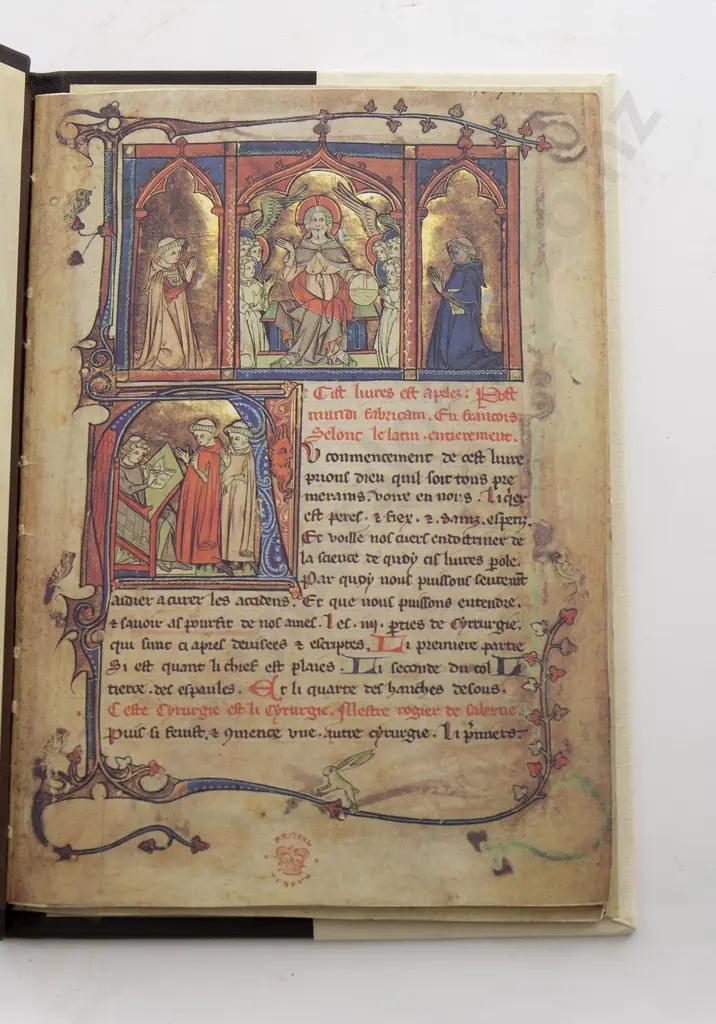 Cist liures est apelez: Post
mundi fabricam. En francois
Selonc le latin. entierement.
U commencement de cest liure
prions dieu quil soit tous pre
merains. voire en nous. Li qex
est peres. & fiex. & sainz. esperiz.
Et voille nos cuers endoctriner de
la science de quoy cis liures pole.
Par quoy nous puissons seurement
aidier a curer les accidens. Et que nous puissons entendre.
& sauoir as pourfit de nos ames. Les .iiij. pties de Cyrurgie.
qui sunt ci apres deuisees & escriptes. Li premiere partie
Si est quant li chief est plaies. Li seconde du col Li
tierce. des espaules. Et li quarte des hanches desous.
Ceste Cyrurgie est li Cyrurgie. Mestre rogier de salerne.
Puis si fenist. & 9mence vne. autre cyrurgie. Li pmiers.
BRITISH
MUSEUM